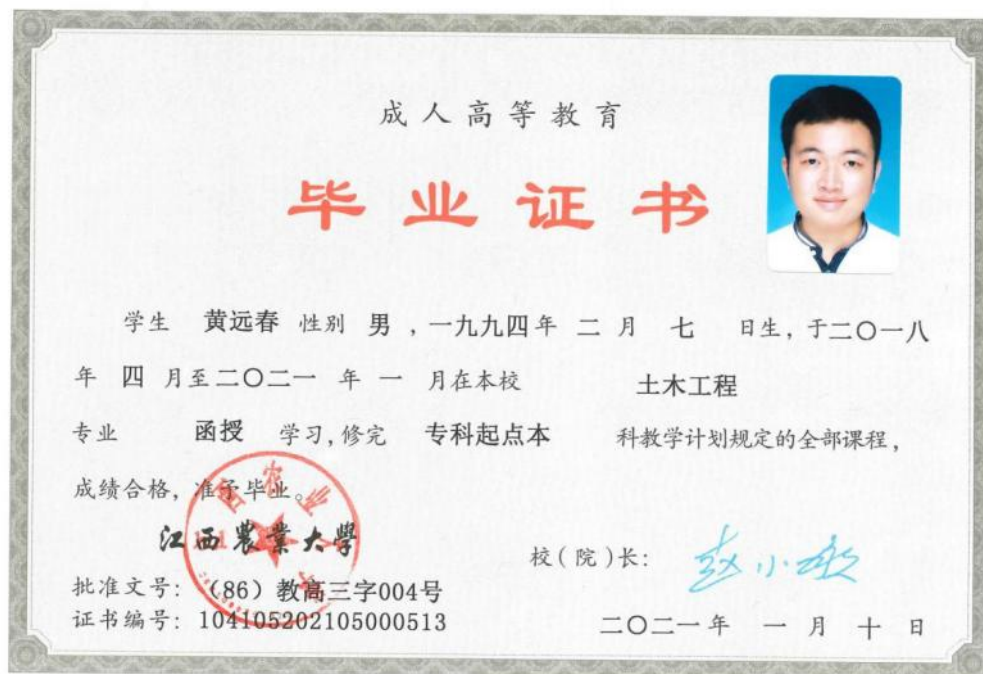 成人高等教育
毕业证书
学生 黄远春 性别 男 ，一九九四年 二 月 七 日生，于二〇一八
年 四 月至二〇二一 年 一 月在本校 土木工程
专业 函授 学习，修完 专科起点本 科教学计划规定的全部课程，
成绩合格，准予毕业。
江西農業大學
校（院）长：赵小敏
批准文号：（86）教高三字004号
证书编号：104105202105000513
二〇二一年 一 月 十 日